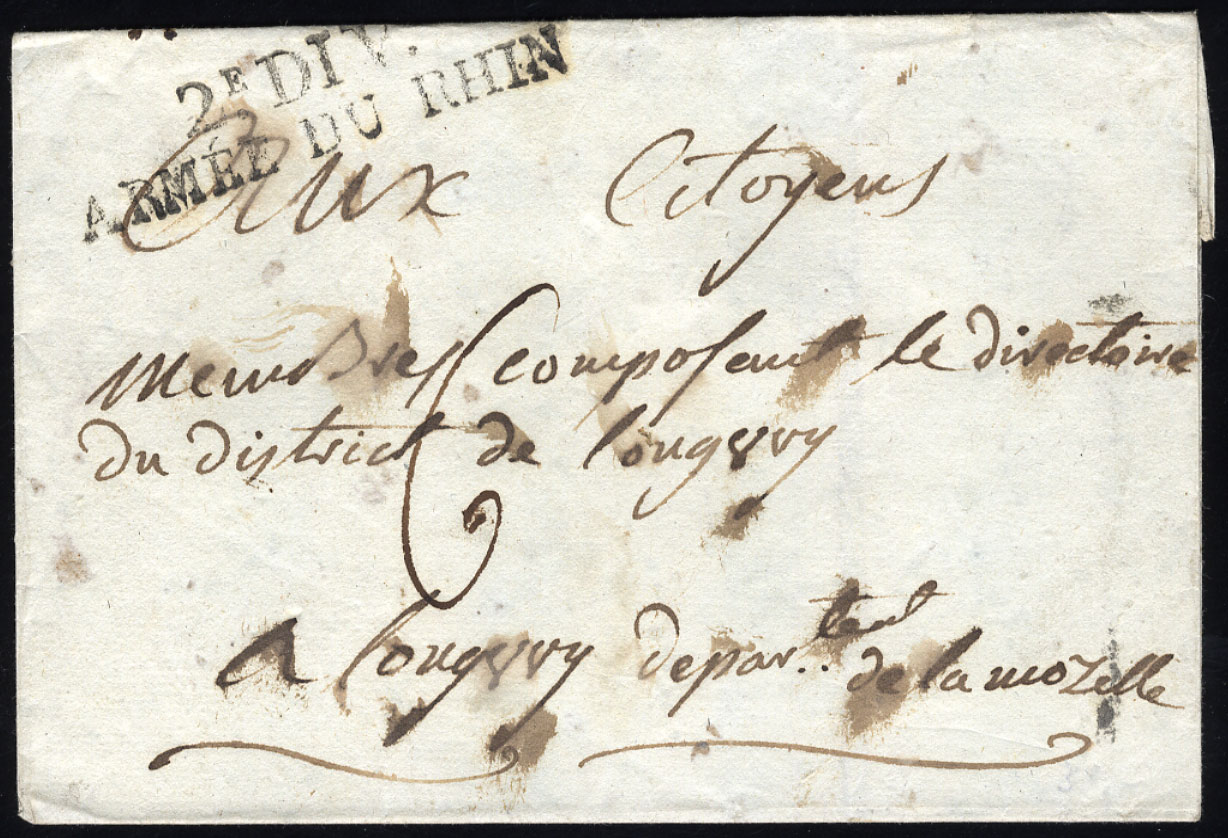 2E DIV.
ARMÉE DU RHIN
Aux Citoyens
Membres composant le directoire
du district de longwy
6
a longwy depar..tent de la mozelle